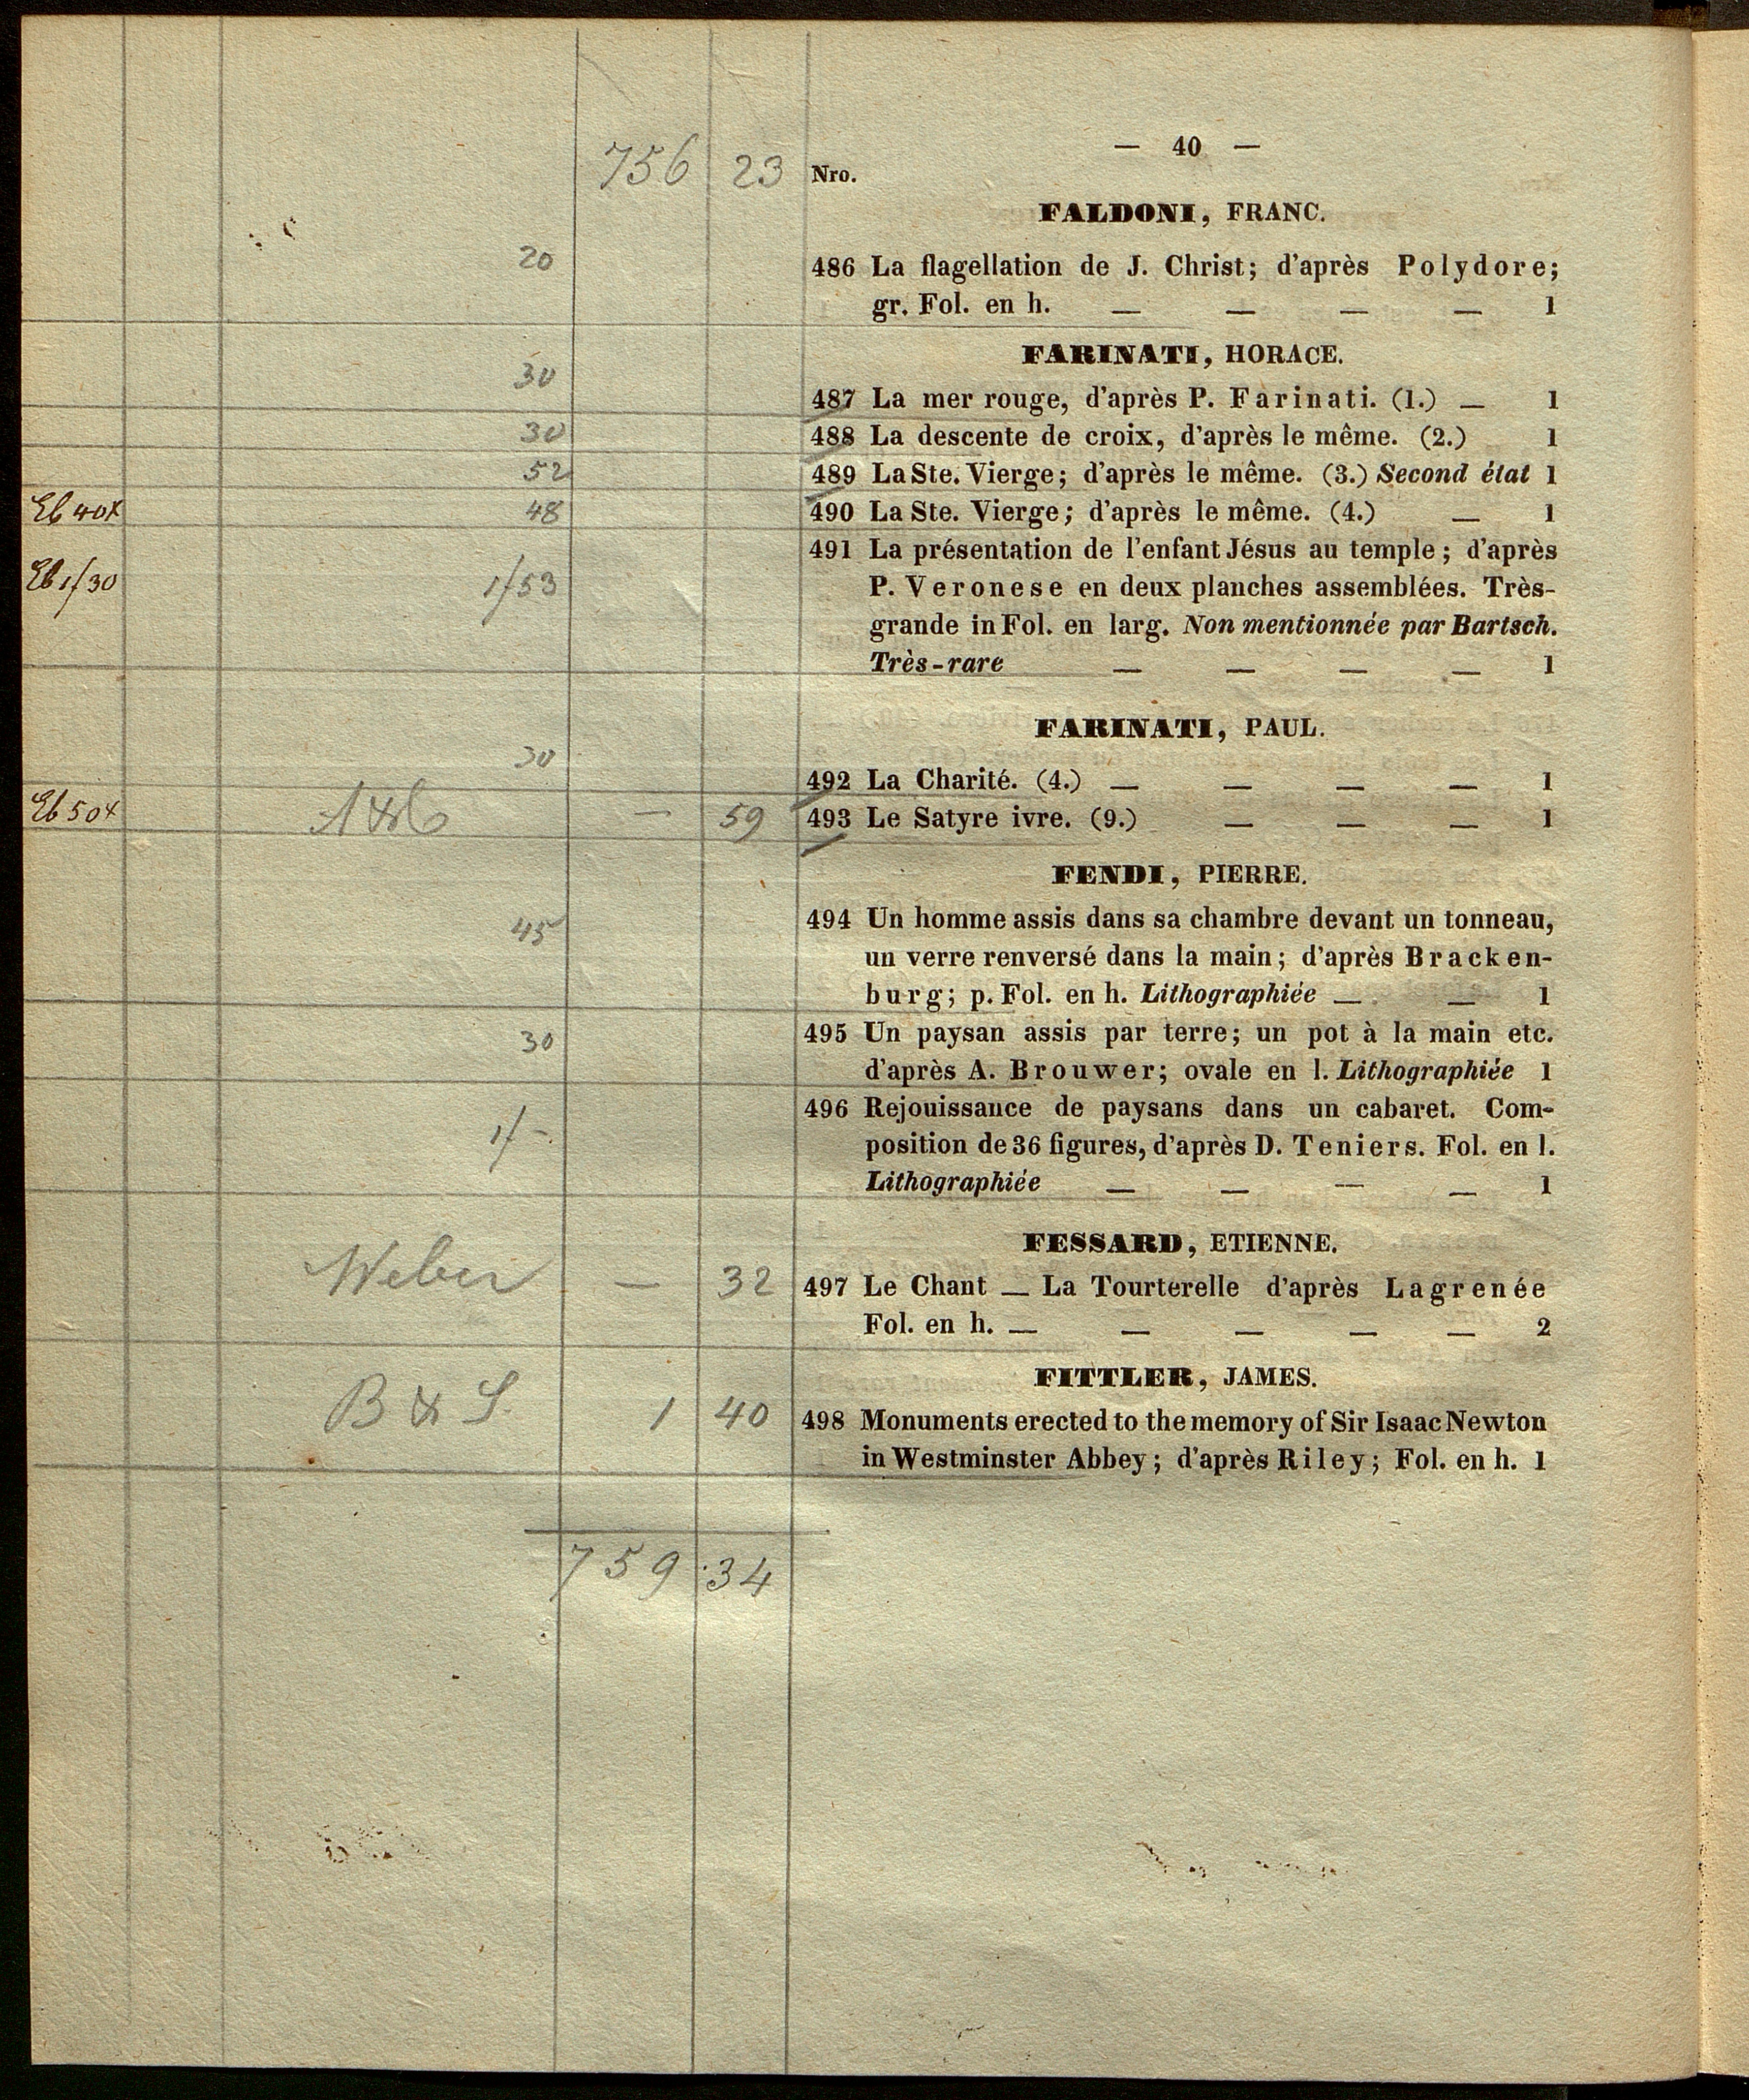 — 40 —
756 23 Nro.
FALDONI, FRANC.
20 486 La flagellation de J. Christ; d'après Polydore;
gr. Fol. en h. — — — — 1
FARINATI, HORACE.
30 487 La mer rouge, d'après P. Farinati. (1.) — 1
30 488 La descente de croix, d'après le même. (2.) 1
52 489 La Ste. Vierge; d'après le même. (3.) Second état 1
Eb 40x 48 490 La Ste. Vierge; d'après le même. (4.) — 1
491 La présentation de l'enfant Jésus au temple; d'après
Eb 1/30 1/53 P. Veronese en deux planches assemblées. Très-
grande in Fol. en larg. Non mentionnée par Bartsch.
Très-rare — — — — 1
FARINATI, PAUL.
30 492 La Charité. (4.) — — — — 1
Eb 50x — 59 493 Le Satyre ivre. (9.) — — — 1
FENDI, PIERRE.
45 494 Un homme assis dans sa chambre devant un tonneau,
un verre renversé dans la main; d'après Bracken-
burg; p. Fol. en h. Lithographiée — — 1
30 495 Un paysan assis par terre; un pot à la main etc.
d'après A. Brouwer; ovale en l. Lithographiée 1
496 Rejouissance de paysans dans un cabaret. Com-
1/- position de 36 figures, d'après D. Teniers. Fol. en l.
Lithographiée — — — — 1
FESSARD, ETIENNE.
Weber — 32 497 Le Chant — La Tourterelle d'après Lagrenée
Fol. en h. — — — — — 2
FITTLER, JAMES.
B & S. 1 40 498 Monuments erected to the memory of Sir Isaac Newton
in Westminster Abbey; d'après Riley; Fol. en h. 1
759 34